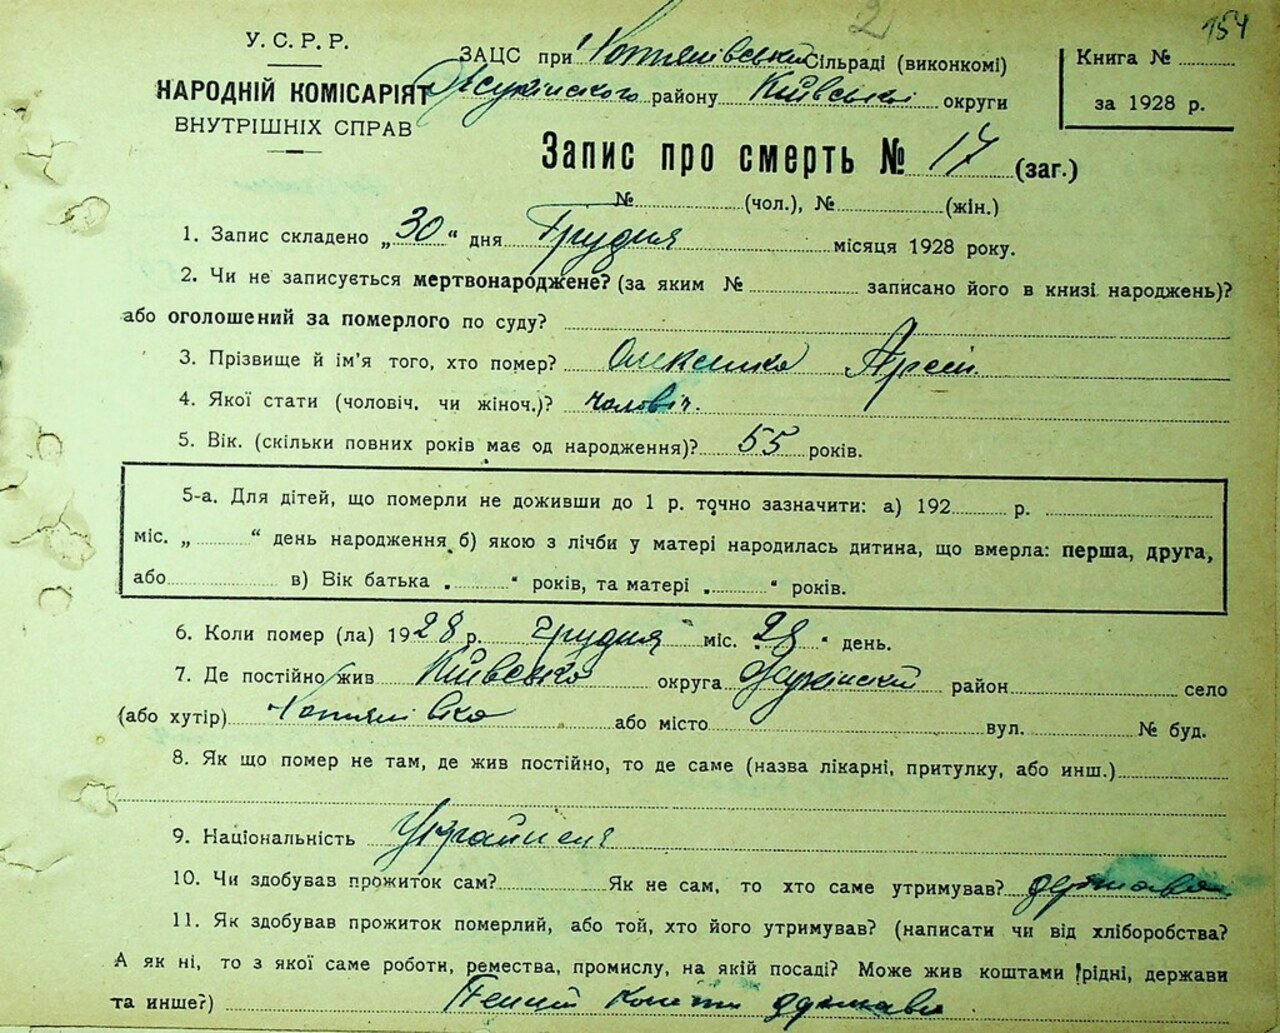 2 154
У. С. Р. Р.
НАРОДНІЙ КОМІСАРІЯТ
ВНУТРІШНІХ СПРАВ
ЗАЦС при Сільраді (виконкомі)
району Київської округи
Книга №
за 1928 р.
Запис про смерть № 17 (заг.)
№ (чол.), № (жін.)
1. Запис складено „30“ дня Грудня місяця 1928 року.
2. Чи не записується мертвонароджене? (за яким № записано його в книзі народжень)?
або оголошений за померлого по суду?
3. Прізвище й ім'я того, хто помер? Олексієнко Арсій
4. Якої стати (чоловіч. чи жіноч.)? чоловіч.
5. Вік. (скільки повних років має од народження)? 55 років.
5-а. Для дітей, що померли не доживши до 1 р. точно зазначити: а) 192 р.
міс. „ “ день народження б) якою з лічби у матері народилась дитина, що вмерла: перша, друга,
або в) Вік батька „ “ років, та матері „ “ років.
6. Коли помер (ла) 1928 р. грудня міс. „28“ день.
7. Де постійно жив Київсько округа район село
(або хутір) або місто вул. № буд.
8. Як що помер не там, де жив постійно, то де саме (назва лікарні, притулку, або инш.)
9. Національність Українець
10. Чи здобував прожиток сам? Як не сам, то хто саме утримував? держава
11. Як здобував прожиток померлий, або той, хто його утримував? (написати чи від хліборобства?
А як ні, то з якої саме роботи, ремества, промислу, на якій посаді? Може жив коштами рідні, держави
та инше?) держави